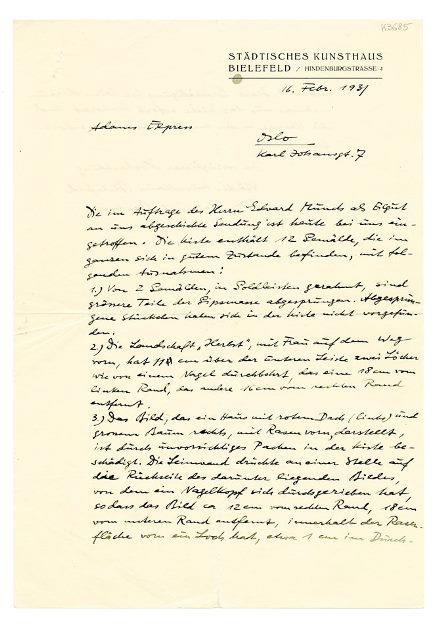 K3685
STÄDTISCHES KUNSTHAUS
BIELEFELD / HINDENBURGSTRASSE 4
16. Febr. 1931
Adams Express
Oslo
Karl Johansgt. 7
Die im Auftrage des Herrn Edvard Munch als Eilgut
an uns abgeschickte Sendung ist heute bei uns ein-
getroffen. Die Kiste enthält 12 Gemälde, die im
ganzen sich in gutem Zustande befinden, mit fol-
genden Ausnahmen:
1.) Von 2 Gemälden, in Goldleisten gerahmt, sind
grössere Teile der Gipsmasse abgesprungen. Abgesprun-
gene Stückchen haben sich in der Kiste nicht vorgefun-
den.
2.) Die Landschaft „Herbst", mit Frau auf dem Weg
vorn, hat cm über der unteren Leiste zwei Löcher
wie von einem Nagel durchbohrt, das eine 18 cm vom
linken Rand, das andere 16 cm vom rechten Rand
entfernt.
3.) Das Bild, das ein Haus mit rotem Dach (links) und
grossem Baum rechts, mit Rasen vorn, darstellt,
ist durch unvorsichtiges Packen in der Kiste be-
schädigt. Die Leinwand drückte an einer Stelle auf
die Rückseite des darunter liegenden Bildes,
von dem ein Nagelkopf sich durchgerieben hat,
sodass das Bild ca 12 cm vom rechten Rand, 18 cm
vom unteren Rand entfernt, innerhalb der Rasen-
fläche vorn ein Loch hat, etwa 1 cm im Durch-